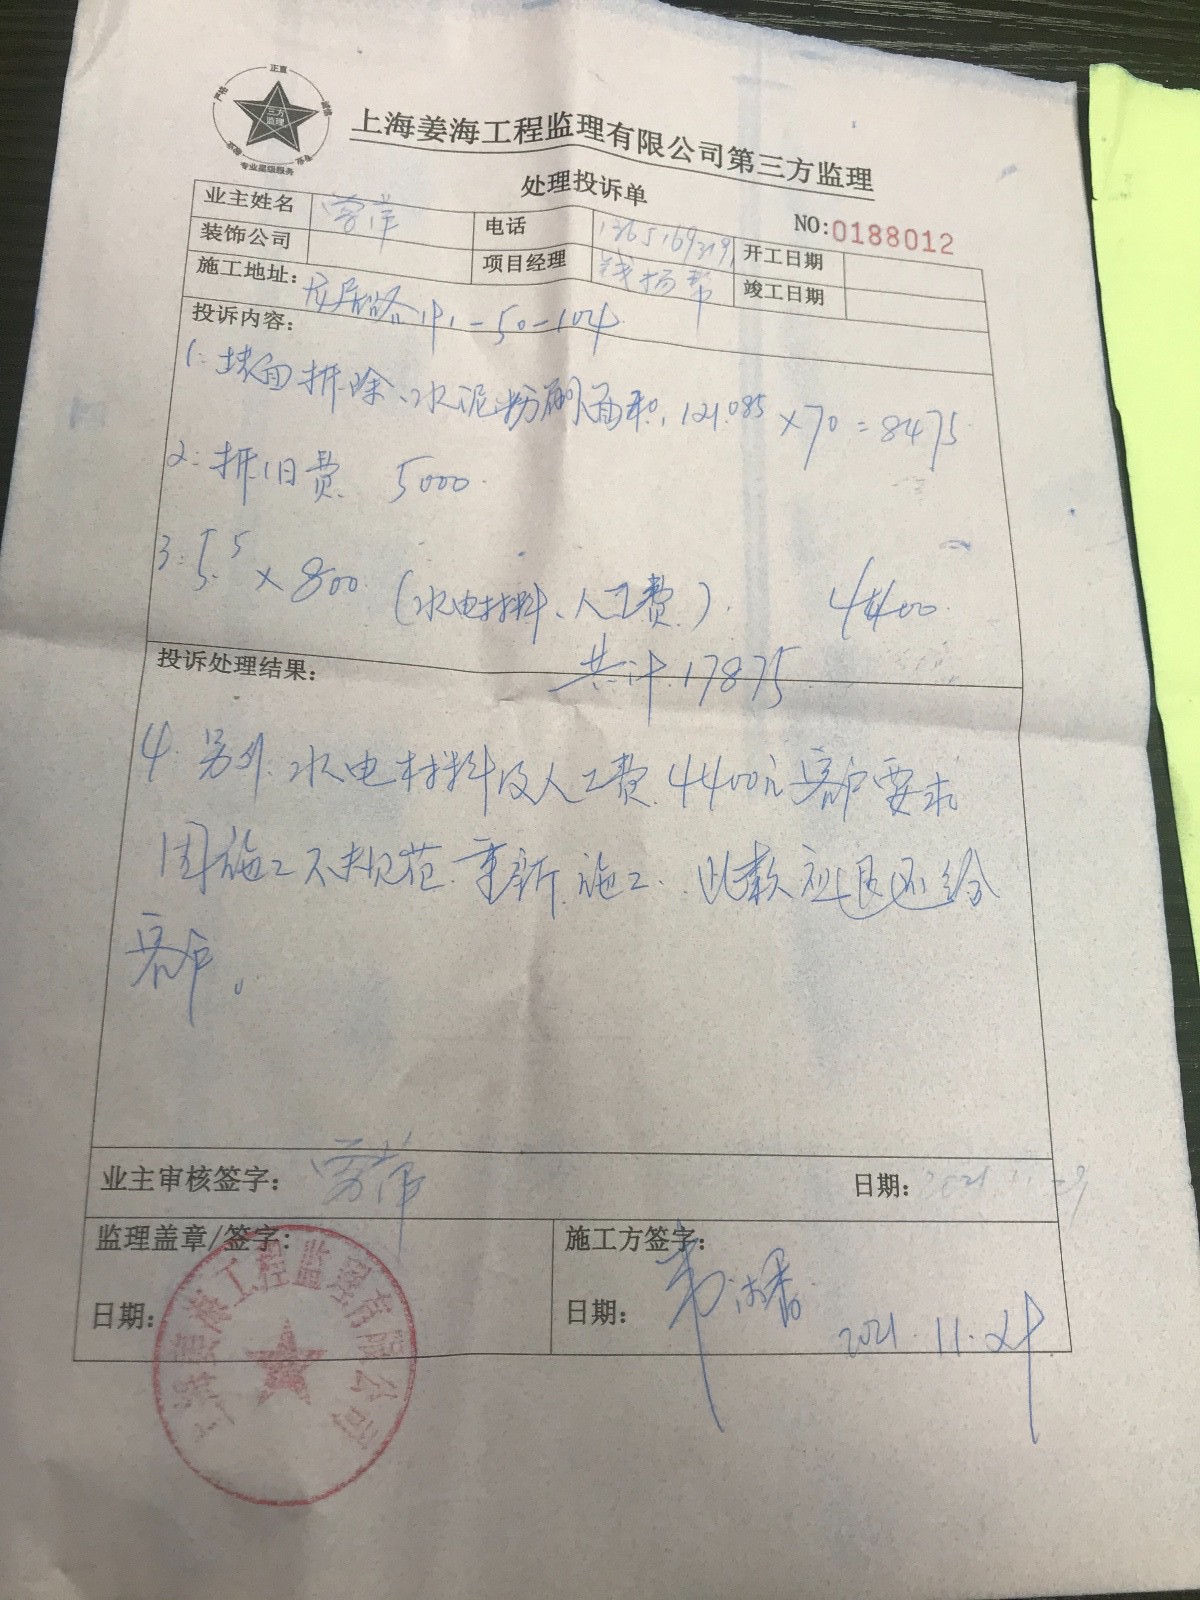 正直
严格
三方
监理
专业星级服务
上海姜海工程监理有限公司第三方监理
处理投诉单
NO:0188012
业主姓名 电话 开工日期
装饰公司 项目经理 竣工日期
施工地址: -50-104
投诉内容:
1: 墙面拆除、水泥粉刷面积, 121.085×70=8475
2: 拆旧费 5000
3: 5.5×800 (水电材料、人工费) 4400
共计 17875
投诉处理结果:
4. 另外 水电材料及人工费 4400元 客户要求
因施工不规范 重新施工. 此款应退还给
客户。
业主审核签字: 日期:
监理盖章/签字: 施工方签字:
日期: 日期: 2021.11.24
上海姜海工程监理有限公司